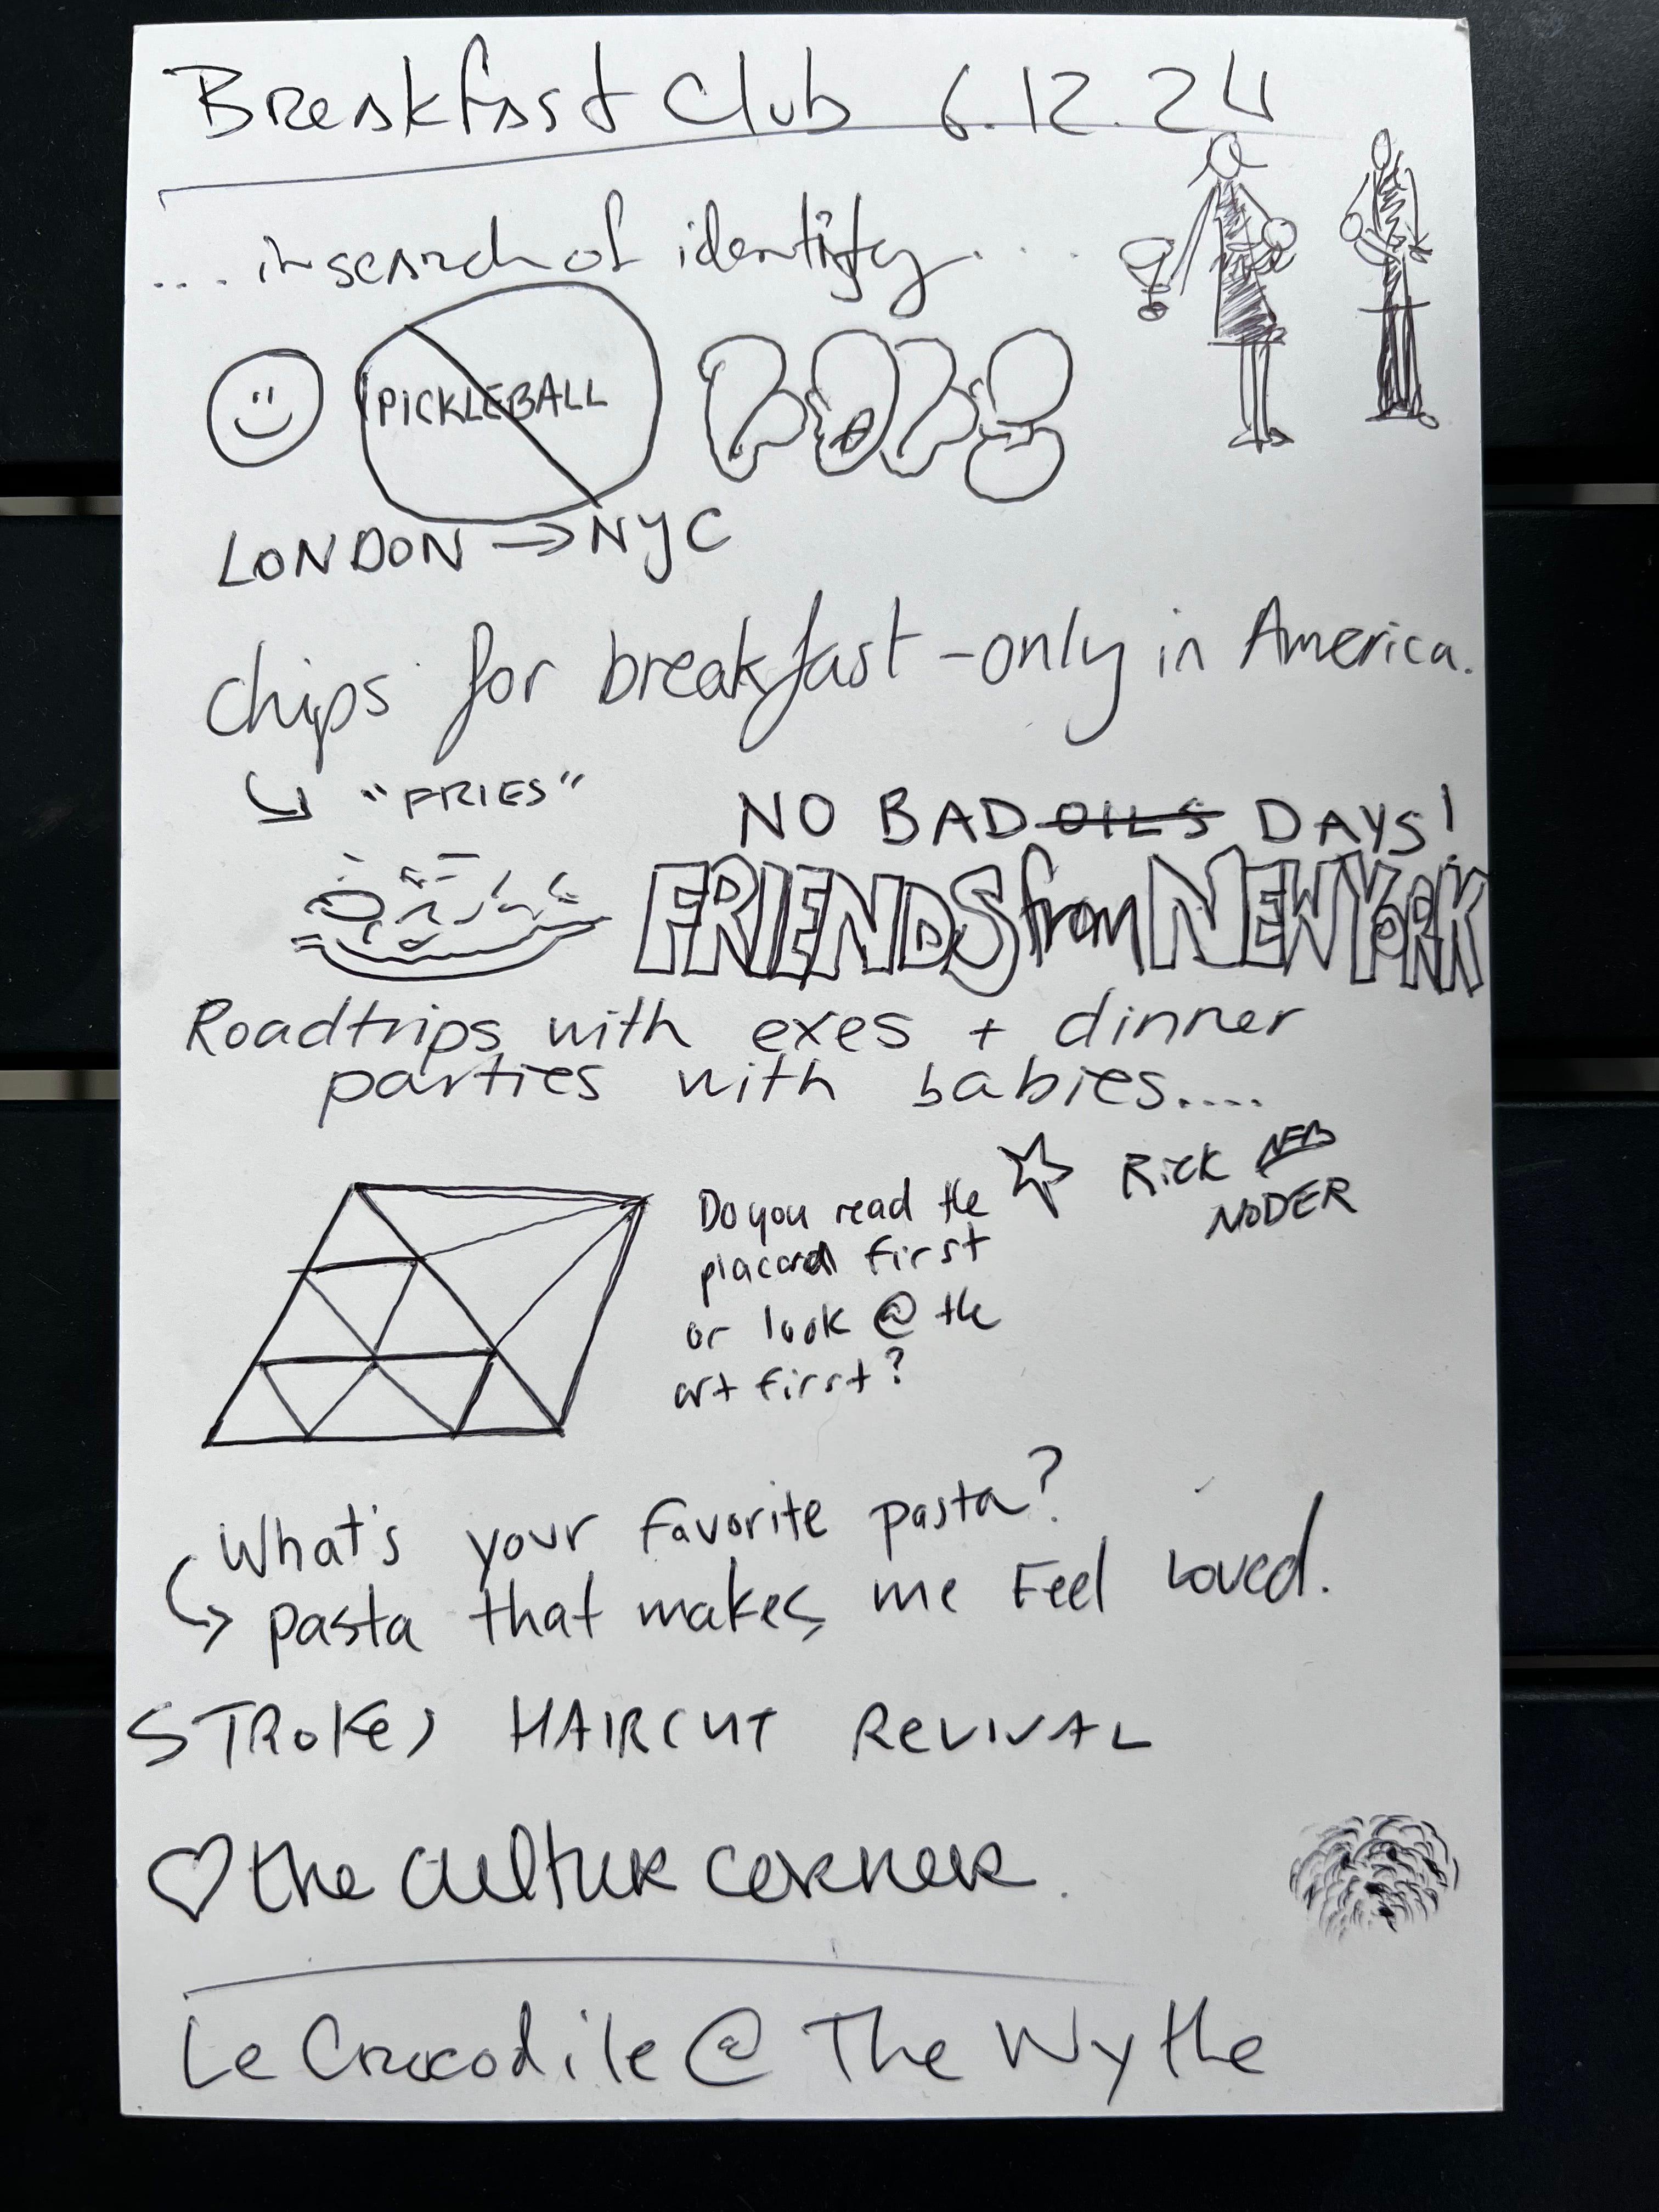 Breakfast Club 6.12.24
....in search of identity....
PICKLEBALL
POPS
LONDON → NYC
chips for breakfast - only in America.
↳ "FRIES"
NO BAD OILS DAYS!
FRIENDS from NEW YORK
Roadtrips with exes + dinner
parties with babies....
Rick
NODER
Do you read the
placard first
or look @ the
art first?
What's your favorite pasta?
↳ pasta that makes me feel Loved.
STROKES HAIRCUT REVIVAL
♡ the culture corner.
Le Crocodile @ The Wythe